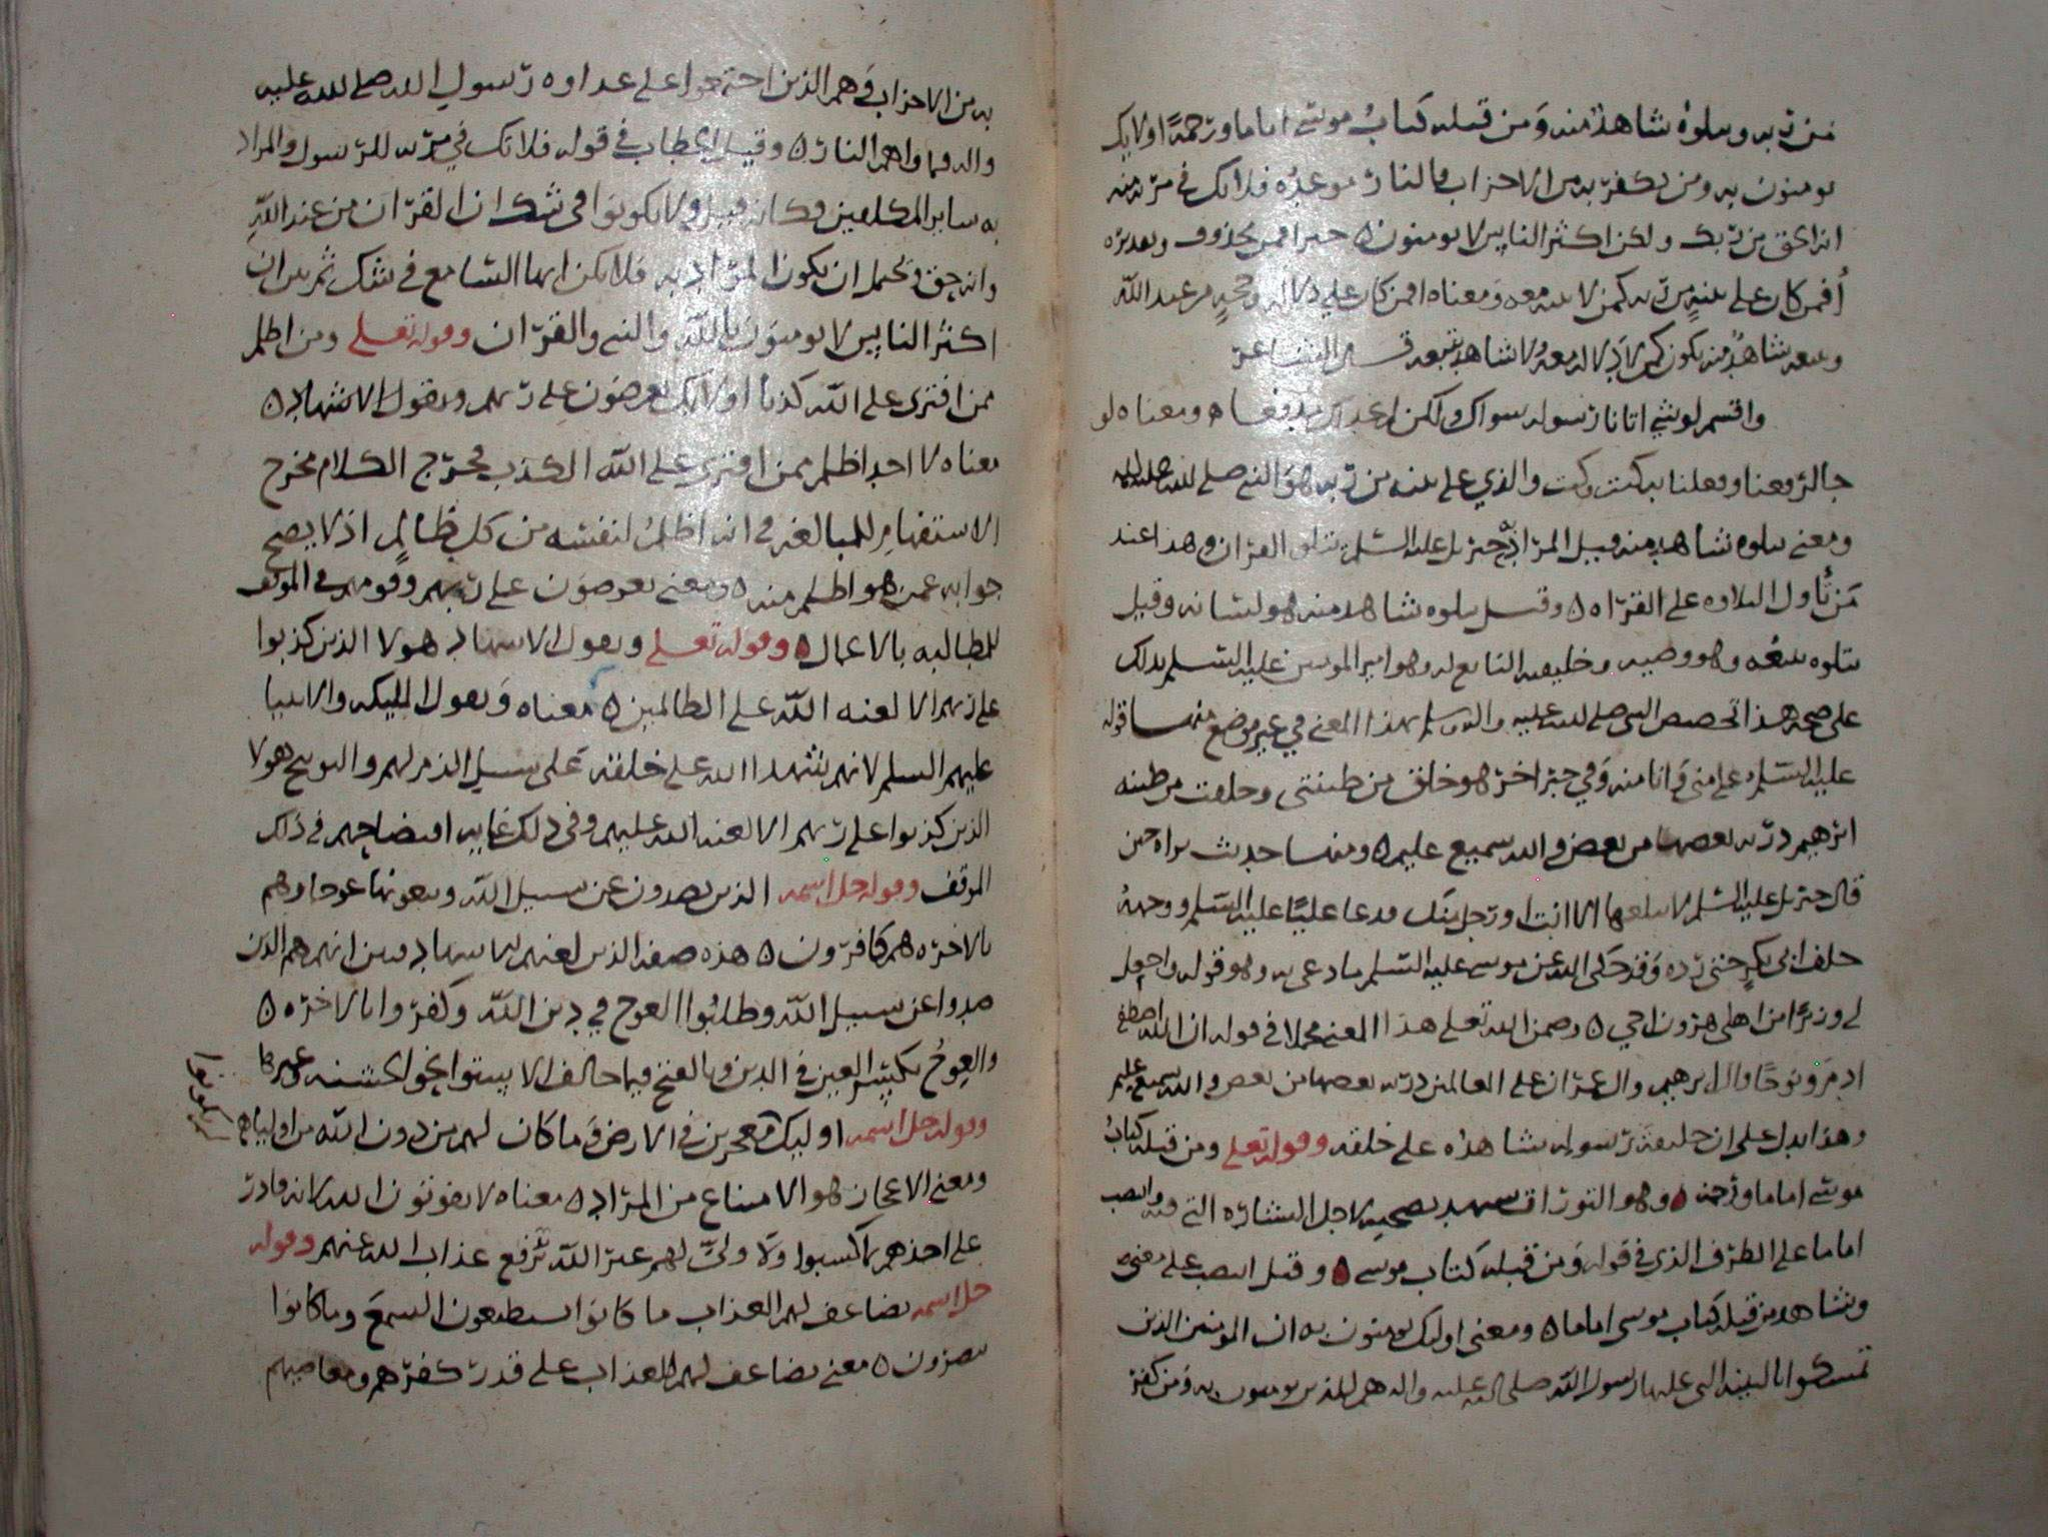 من ربه ويتلوه شاهد منه ومن قبله كتاب موسى اماما ورحمة اولايك
يومنون به ومن يكفر به من الاحزاب فالنار موعده فلا تك في مرية منه
انه الحق من ربك ولكن اكثر الناس لا يومنون ٥ خبر افمن محذوف وتقديره
أفمن كان على بينة من ربه كمن لا بينه معه ومعناه افمن كان على دلاله وحجة من عند الله
ويتبعه شاهد منه يكون كمن لا دلاله معه ولا شاهد يتبعه قال الشاعر
واقسم لو شي اتانا رسوله سواك ولكن لم نجد لك مدفعا ٥ ومعناه لو
جا لدفعنا وفعلنا به كيت وكيت والذي على بينه من ربه هو النبي صلى الله عليه واله
ومعنى يتلوه شاهد منه قيل المراد جبريل عليه السلم يتلو القران وهذا عند
من تأول التلاوه على القراه ٥ وقيل يتلوه شاهد منه هو لسانه وقيل
يتلوه يتبعه وهو وصيه وخليفته التابع له وهو امير المومنين عليه السلم يدلك
على صحة هذا تخصيص النبي صلى الله عليه واله وسلم بهذا المعنى في غير موضع منها قوله
عليه السلم علي مني وانا منه وفي خبر اخر هو خلق من طينتي وخلقت من طينه
ابرهيم ذرية بعضها من بعض والله سميع عليم ٥ ومنها حديث براه حين
قال جبريل عليه السلم لا يبلغها الا انت او رجل منك فدعا عليا عليه السلم ووجهه
خلف ابي بكر حتى رده وقد حكى الله عن موسى عليه السلم ما دعى به وهو قوله واجعل
لي وزيرا من اهلي هرون اخي ٥ وضمن الله تعلى هذا المعنى مجملا في قوله ان الله اصطفى
ادم ونوحا وال ابرهيم وال عمران على العالمين ذرية بعضها من بعض والله سميع عليم
وهذا يدل على ان خليفة رسوله شاهده على خلقه وقوله تعلى ومن قبله كتاب
موسى اماما ورحمة ٥ وهو التوراة يشهد بصحته لاجل البشاره التي فيه وانتصب
اماما على الظرف الذي في قوله ومن قبله كتاب موسى ٥ وقيل انتصب على معنى
وشاهد من قبله كتاب موسى اماما ٥ ومعنى اوليك يومنون به ان المومنين الذين
تمسكوا بالبينه التي عليها رسول الله صلى الله عليه واله هم الذين يومنون به ومن كفر
به من الاحزاب وهم الذين اجتمعوا على عداوه رسول الله صلى الله عليه
واله فماواهم النار ٥ وقيل الخطاب في قوله فلا تك في مريه للرسول والمراد
به ساير المكلفين فكانه قيل ولا يكونوا في شك ان القران من عند الله
وانه حق ويحتمل ان يكون المراد به فلا تكن ايها السامع في شك ثم بين ان
اكثر الناس لا يومنون بالله والنبي والقران وقوله تعلى ومن اظلم
ممن افترى على الله كذبا اولايك يعرضون على ربهم ويقول الاشهاد ٥
معناه لا احد اظلم ممن افترى على الله الكذب فخرج الكلام مخرج
الاستفهام للمبالغه في انه اظلم لنفسه من كل ظالم اذ لا يصح
جوابه عمن هو اظلم منه ٥ ومعنى يعرضون على ربهم وقوفهم في الموقف
للمطالبه بالاعمال ٥ وقوله تعلى ويقول الاشهاد هولا الذين كذبوا
على ربهم الا لعنه الله على الظالمين ٥ معناه ويقول المليكه والانبيا
عليهم السلم لانهم شهدا الله على خلقه على سبيل الذم لهم والتوبيخ هولا
الذين كذبوا على ربهم الا لعنه الله عليهم وفي ذلك غايه افتضاحهم في ذلك
الموقف وقوله جل اسمه الذين يصدون عن سبيل الله ويبغونها عوجا وهم
بالاخره هم كافرون ٥ هذه صفه الذين لعنهم الاشهاد وبين انهم هم الذين
صدوا عن سبيل الله وطلبوا العوج في دين الله وكفروا بالاخره ٥
والعوج بكسر العين في الدين وبالفتح فيما خالف الاستوا نحو الخشبه وغيرها
وقوله جل اسمه اوليك معجزين في الارض وما كان لهم من دون الله من اولياه
لم يكونوا
ومعنى الاعجاز هو الامتناع من المراد ٥ معناه لا يفوتون الله لانه قادر
على اخذهم بما كسبوا ولا ولي لهم غير الله يرفع عذاب الله عنهم وقوله
جل اسمه يضاعف لهم العذاب ما كانوا يستطيعون السمع وما كانوا
يبصرون ٥ معنى يضاعف لهم العذاب على قدر كفرهم ومعاصيهم